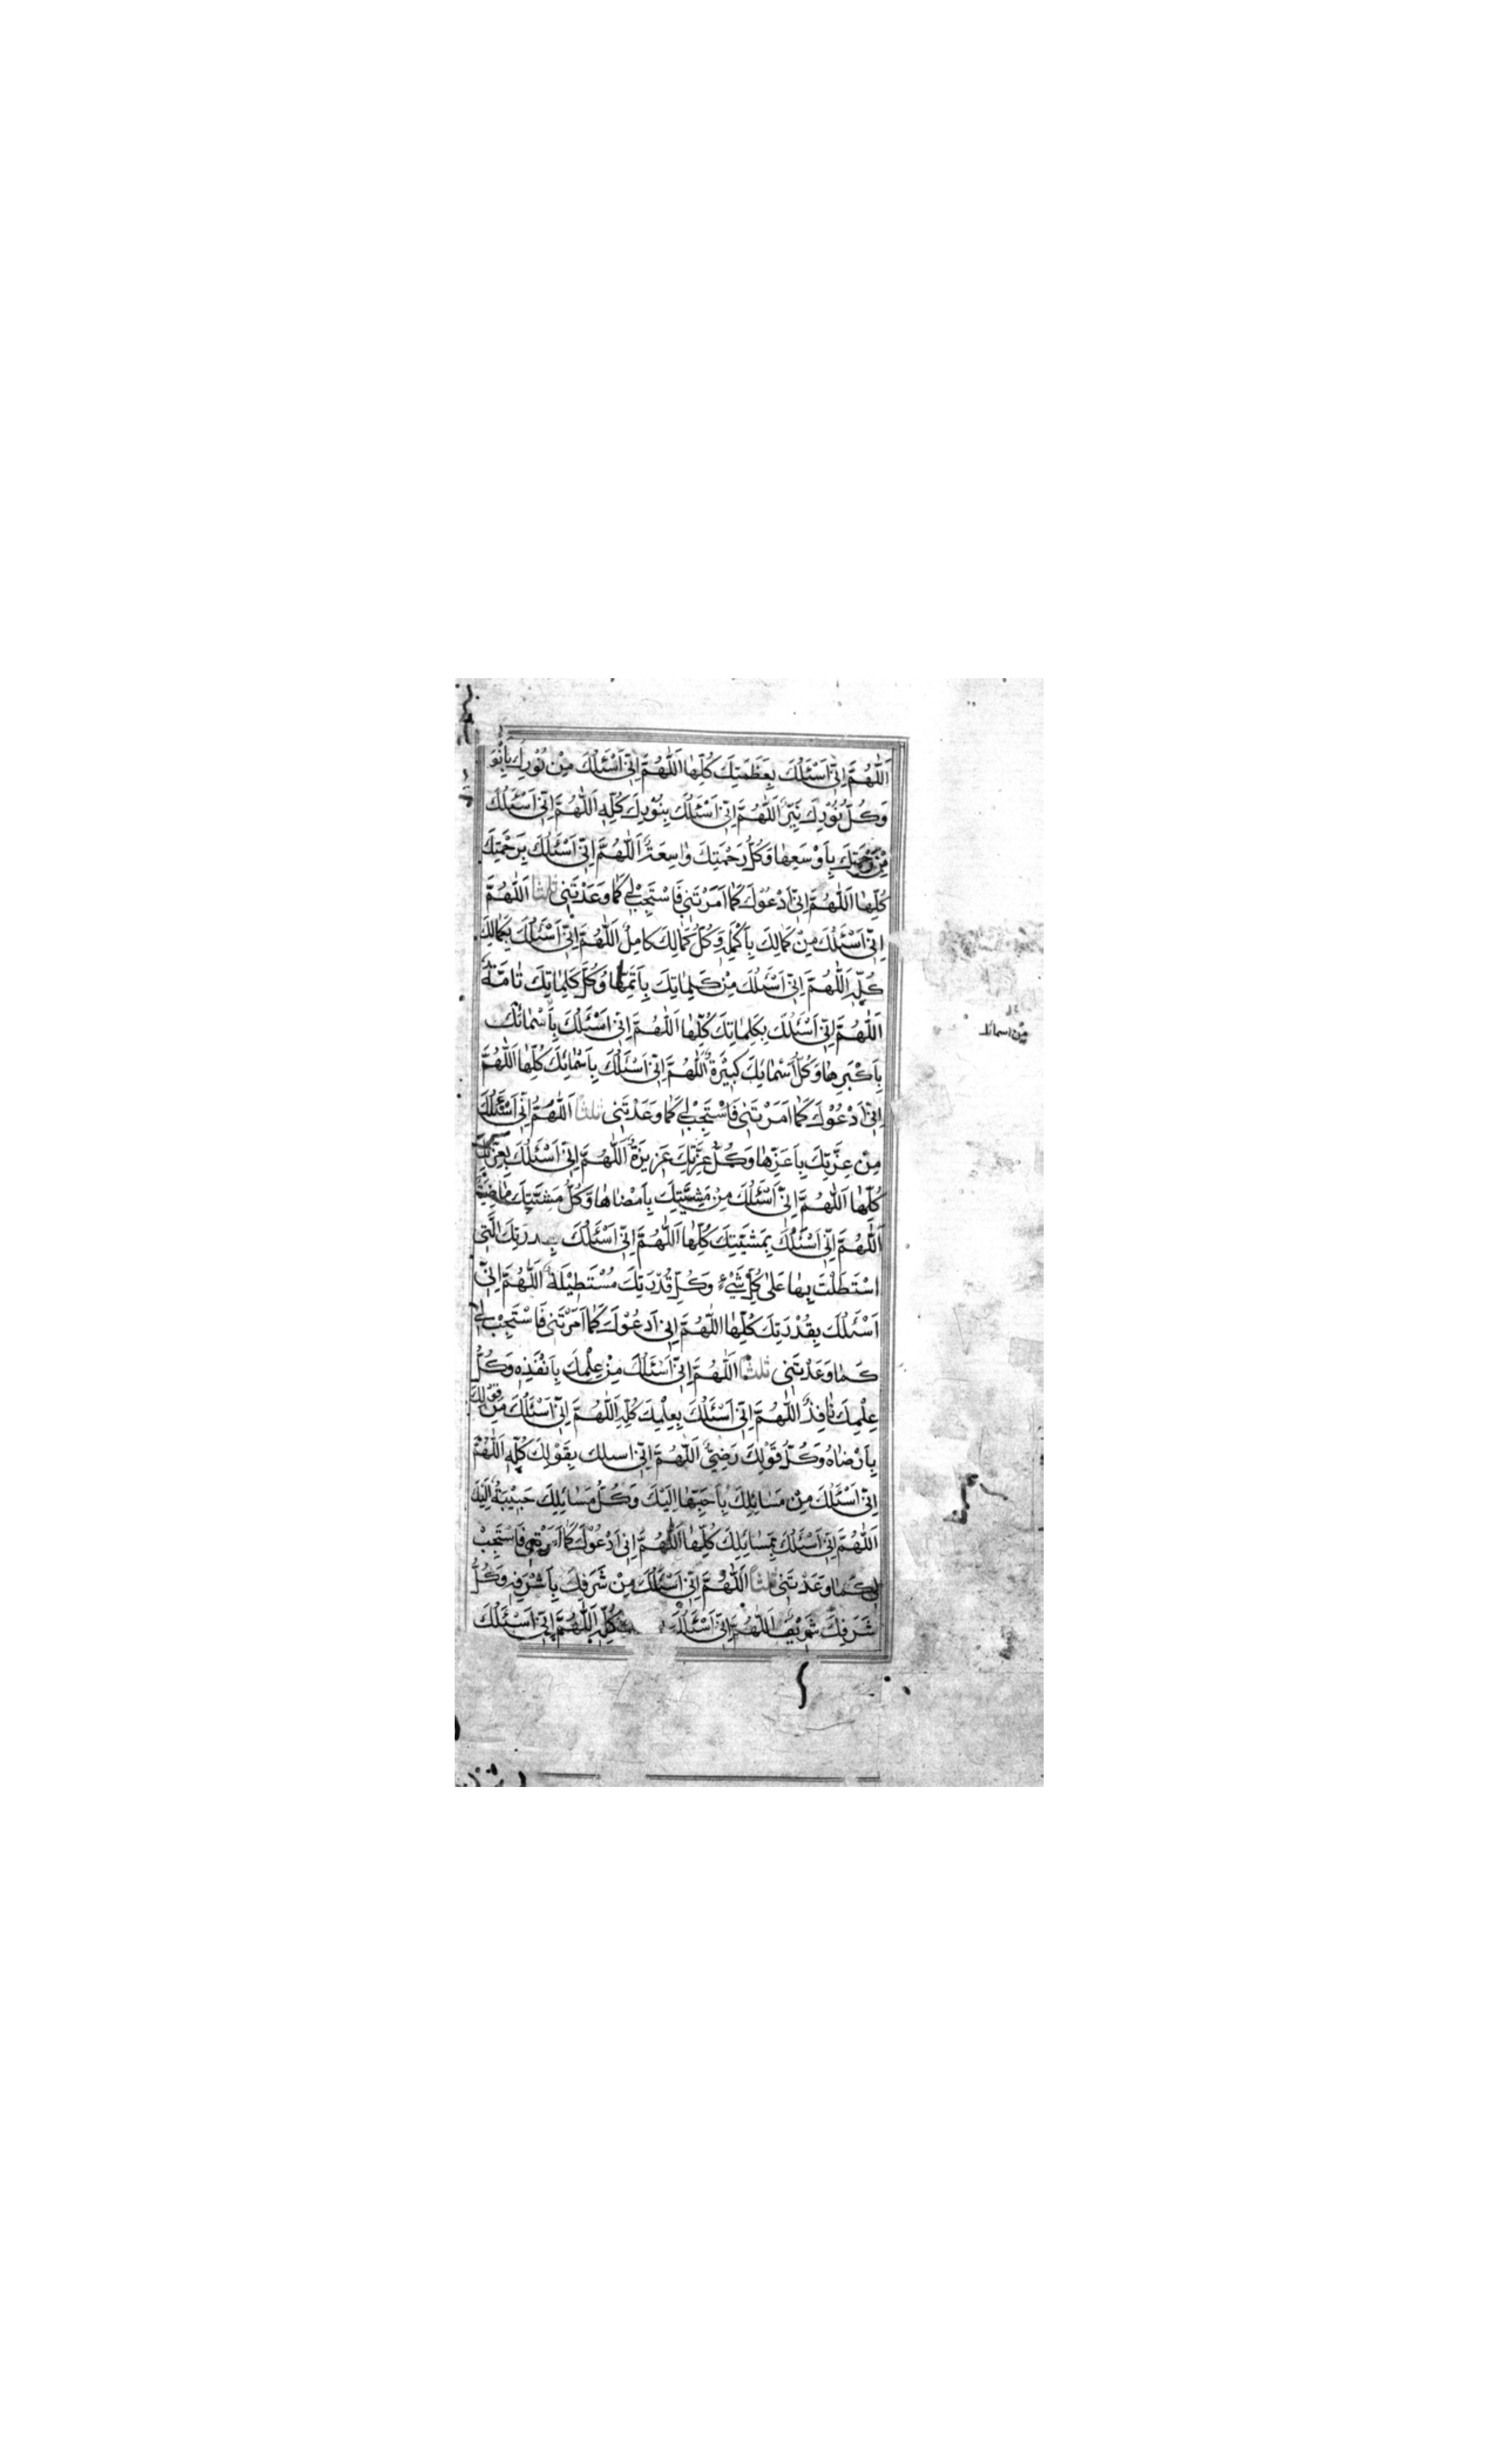 اَللّٰهُمَّ اِنّٖى اَسْئَلُكَ بِعَظَمَتِكَ كُلِّهٰا اَللّٰهُمَّ اِنّٖى اَسْئَلُكَ مِنْ نُوْرِكَ بِاَنْوَ
وَكُلُّ نُوْرِكَ نَيِّرٌ اَللّٰهُمَّ اِنّٖى اَسْئَلُكَ بِنُوْرِكَ كُلِّهِ اَللّٰهُمَّ اِنّٖى اَسْئَلُكَ
مِنْ رَحْمَتِكَ بِاَوْسَعِهٰا وَكُلُّ رَحْمَتِكَ وٰاسِعَةٌ اَللّٰهُمَّ اِنّٖى اَسْئَلُكَ بِرَحْمَتِكَ
كُلِّهٰا اَللّٰهُمَّ اِنّٖى اَدْعُوْكَ كَمٰا اَمَرْتَنٖى فَاسْتَجِبْ لٖى كَمٰا وَعَدْتَنٖى ثلثا اَللّٰهُمَّ
اِنّٖى اَسْئَلُكَ مِنْ كَمٰالِكَ بِاَكْمَلِهِ وَكُلُّ كَمٰالِكَ كٰامِلٌ اَللّٰهُمَّ اِنّٖى اَسْئَلُكَ بِكَمٰالِكَ
كُلِّهِ اَللّٰهُمَّ اِنّٖى اَسْئَلُكَ مِنْ كَلِمٰاتِكَ بِاَتَمِّهٰا وَكُلُّ كَلِمٰاتِكَ تٰامَّةٌ
اَللّٰهُمَّ اِنّٖى اَسْئَلُكَ بِكَلِمٰاتِكَ كُلِّهٰا اَللّٰهُمَّ اِنّٖى اَسْئَلُكَ بِاَسْمٰائِكَ
من اسمائك
بِاَكْبَرِهٰا وَكُلُّ اَسْمٰائِكَ كَبٖيْرَةٌ اَللّٰهُمَّ اِنّٖى اَسْئَلُكَ بِاَسْمٰائِكَ كُلِّهٰا اَللّٰهُمَّ
اِنّٖى اَدْعُوْكَ كَمٰا اَمَرْتَنٖى فَاسْتَجِبْ لٖى كَمٰا وَعَدْتَنٖى ثلثا اَللّٰهُمَّ اِنّٖى اَسْئَلُكَ
مِنْ عِزَّتِكَ بِاَعَزِّهٰا وَكُلُّ عِزَّتِكَ عَزٖيزَةٌ اَللّٰهُمَّ اِنّٖى اَسْئَلُكَ بِعِزَّتِكَ
كُلِّهٰا اَللّٰهُمَّ اِنّٖى اَسْئَلُكَ مِنْ مَشِيَّتِكَ بِاَمْضٰاهٰا وَكُلُّ مَشِيَّتِكَ مٰاضِيَةٌ
اَللّٰهُمَّ اِنّٖى اَسْئَلُكَ بِمَشِيَّتِكَ كُلِّهٰا اَللّٰهُمَّ اِنّٖى اَسْئَلُكَ بِقُدْرَتِكَ الَّتٖى
اسْتَطَلْتَ بِهٰا عَلٰى كُلِّ شَيْءٍ وَكُلُّ قُدْرَتِكَ مُسْتَطٖيْلَةٌ اَللّٰهُمَّ اِنّٖى
اَسْئَلُكَ بِقُدْرَتِكَ كُلِّهٰا اَللّٰهُمَّ اِنّٖى اَدْعُوْكَ كَمٰا اَمَرْتَنٖى فَاسْتَجِبْ لٖى
كَمٰا وَعَدْتَنٖى ثلثا اَللّٰهُمَّ اِنّٖى اَسْئَلُكَ مِنْ عِلْمِكَ بِاَنْفَذِهِ وَكُلُّ
عِلْمِكَ نٰافِذٌ اَللّٰهُمَّ اِنّٖى اَسْئَلُكَ بِعِلْمِكَ كُلِّهِ اَللّٰهُمَّ اِنّٖى اَسْئَلُكَ مِنْ قَوْلِكَ
بِاَرْضٰاهُ وَكُلُّ قَوْلِكَ رَضِيٌّ اَللّٰهُمَّ اِنّٖى اسئلك بِقَوْلِكَ كُلِّهِ اَللّٰهُمَّ
اِنّٖى اَسْئَلُكَ مِنْ مَسٰائِلِكَ بِاَحَبِّهٰا اِلَيْكَ وَكُلُّ مَسٰائِلِكَ حَبٖيْبَةٌ اِلَيْكَ
اَللّٰهُمَّ اِنّٖى اَسْئَلُكَ بِمَسٰائِلِكَ كُلِّهٰا اَللّٰهُمَّ اِنّٖى اَدْعُوْكَ كَمٰا اَمَرْتَنٖى فَاسْتَجِبْ
لٖى كَمٰا وَعَدْتَنٖى ثلثا اَللّٰهُمَّ اِنّٖى اَسْئَلُكَ مِنْ شَرَفِكَ بِاَشْرَفِهِ وَكُلُّ
شَرَفِكَ شَرٖيْفٌ اَللّٰهُمَّ اِنّٖى اَسْئَلُكَ كُلِّهِ اَللّٰهُمَّ اِنّٖى اَسْئَلُكَ